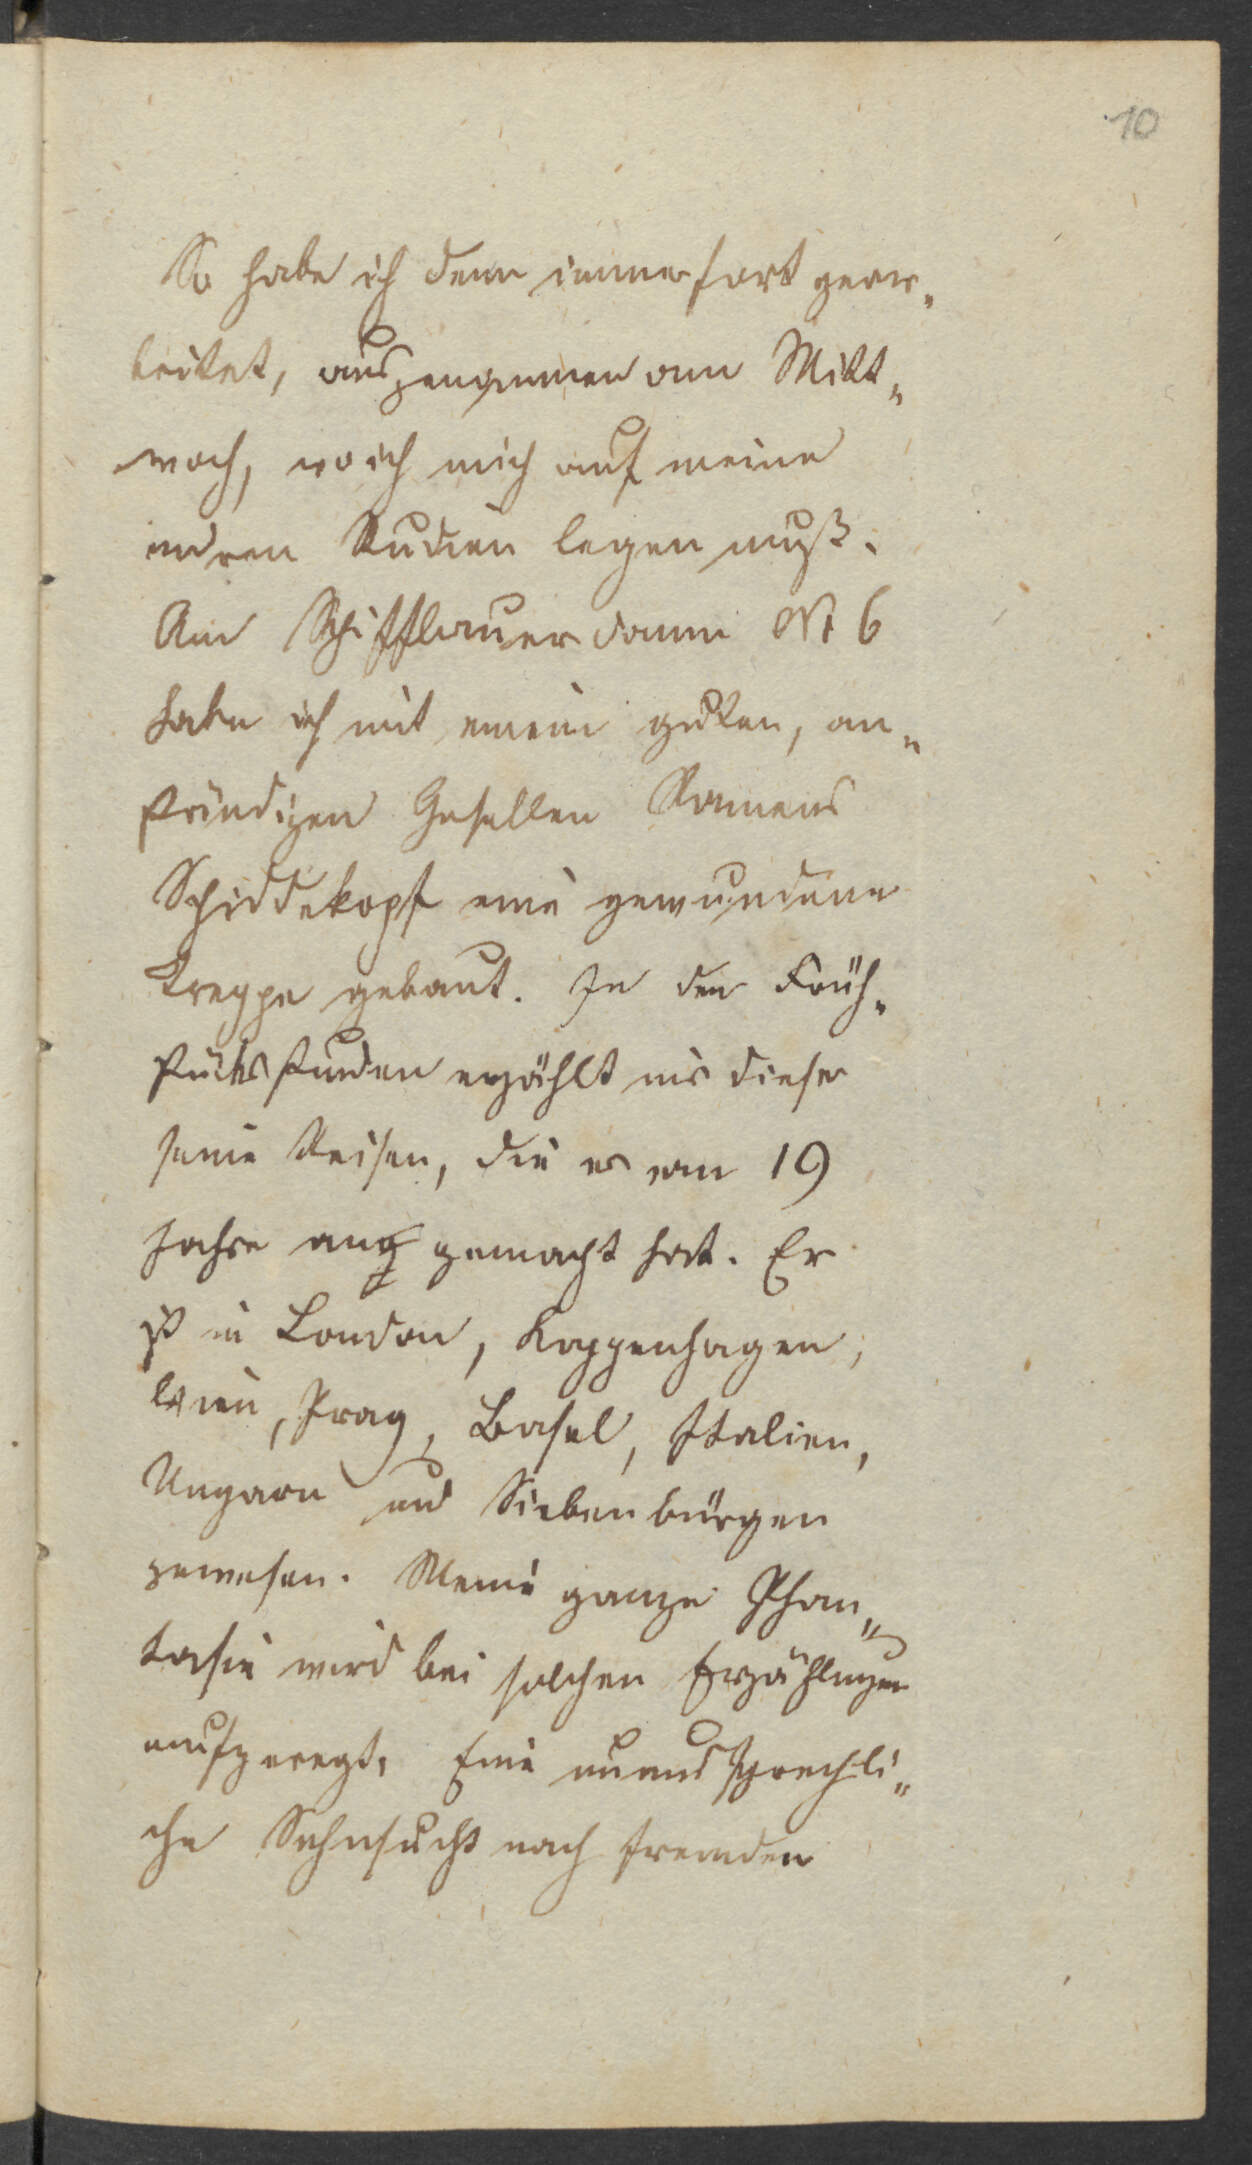 10
So habe ich denn immerfort gear-
beitet, ausgenommen am Mitt-
woch, wo ich mich auf meine
andren Studien legen muß.
Am Schiffbauerdamm No 6
habe ich mit einem guten, an-
ständigen Gesellen Namens
Schiddekopf eine gewundene
Treppe gebaut. In den Früh-
stücksstunden erzählt mir dieser
seine Reisen, die er 19
Jahre gemacht hat. Er
ist in London, Koppenhagen,
Wien, Prag, Basel, Italien,
Ungarn und Siebenbürgen
gewesen. Meine ganze Phan-
tasie wird bei solchen Erzählungen
aufgeregt. Eine unaussprechli-
che Sehnsucht nach fremden